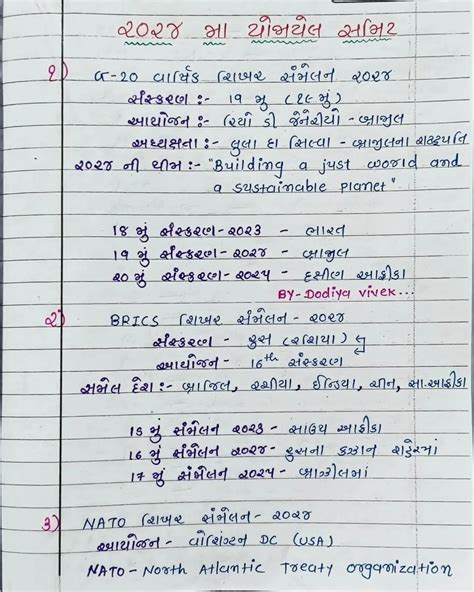 ૨૦૨૪ માં યોજાયેલ સમિટ
૧) G-20 વાર્ષિક શિખર સંમેલન ૨૦૨૪
સંસ્કરણ :- ૧૯ મુ (૧૯ મું)
આયોજન :- રિયો ડી જેનેરીયો - બ્રાજીલ
અધ્યક્ષતા :- લુલા દા સિલ્વા - બ્રાજીલના રાષ્ટ્રપતિ
૨૦૨૪ ની થીમ :- "Building a just world and
a sustainable planet"
18 મું સંસ્કરણ - ૨૦૨૩ - ભારત
19 મું સંસ્કરણ - ૨૦૨૪ - બ્રાજીલ
૨૦ મું સંસ્કરણ - ૨૦૨૫ - દક્ષીણ આફ્રીકા
BY- Dodiya vivek...
૨) BRICS શિખર સંમેલન - ૨૦૨૪
સંસ્કરણ - રુસ (રશિયા)
આયોજન - 16th સંસ્કરણ
સમેલ દેશ :- બ્રાજિલ, રશીયા, ઈન્ડિયા, ચીન, સા.આફ્રીકા
15 મું સંમેલન ૨૦૨૩ - સાઉથ આફ્રીકા
16 મું સંમેલન ૨૦૨૪ - રુસના કઝાન શહેરમાં
17 મું સંમેલન ૨૦૨૫ - બ્રાઝીલમાં
3) NATO શિખર સંમેલન - ૨૦૨૪
આયોજન - વોશિંગ્ટન DC (USA)
NATO - North Atlantic Treaty organization